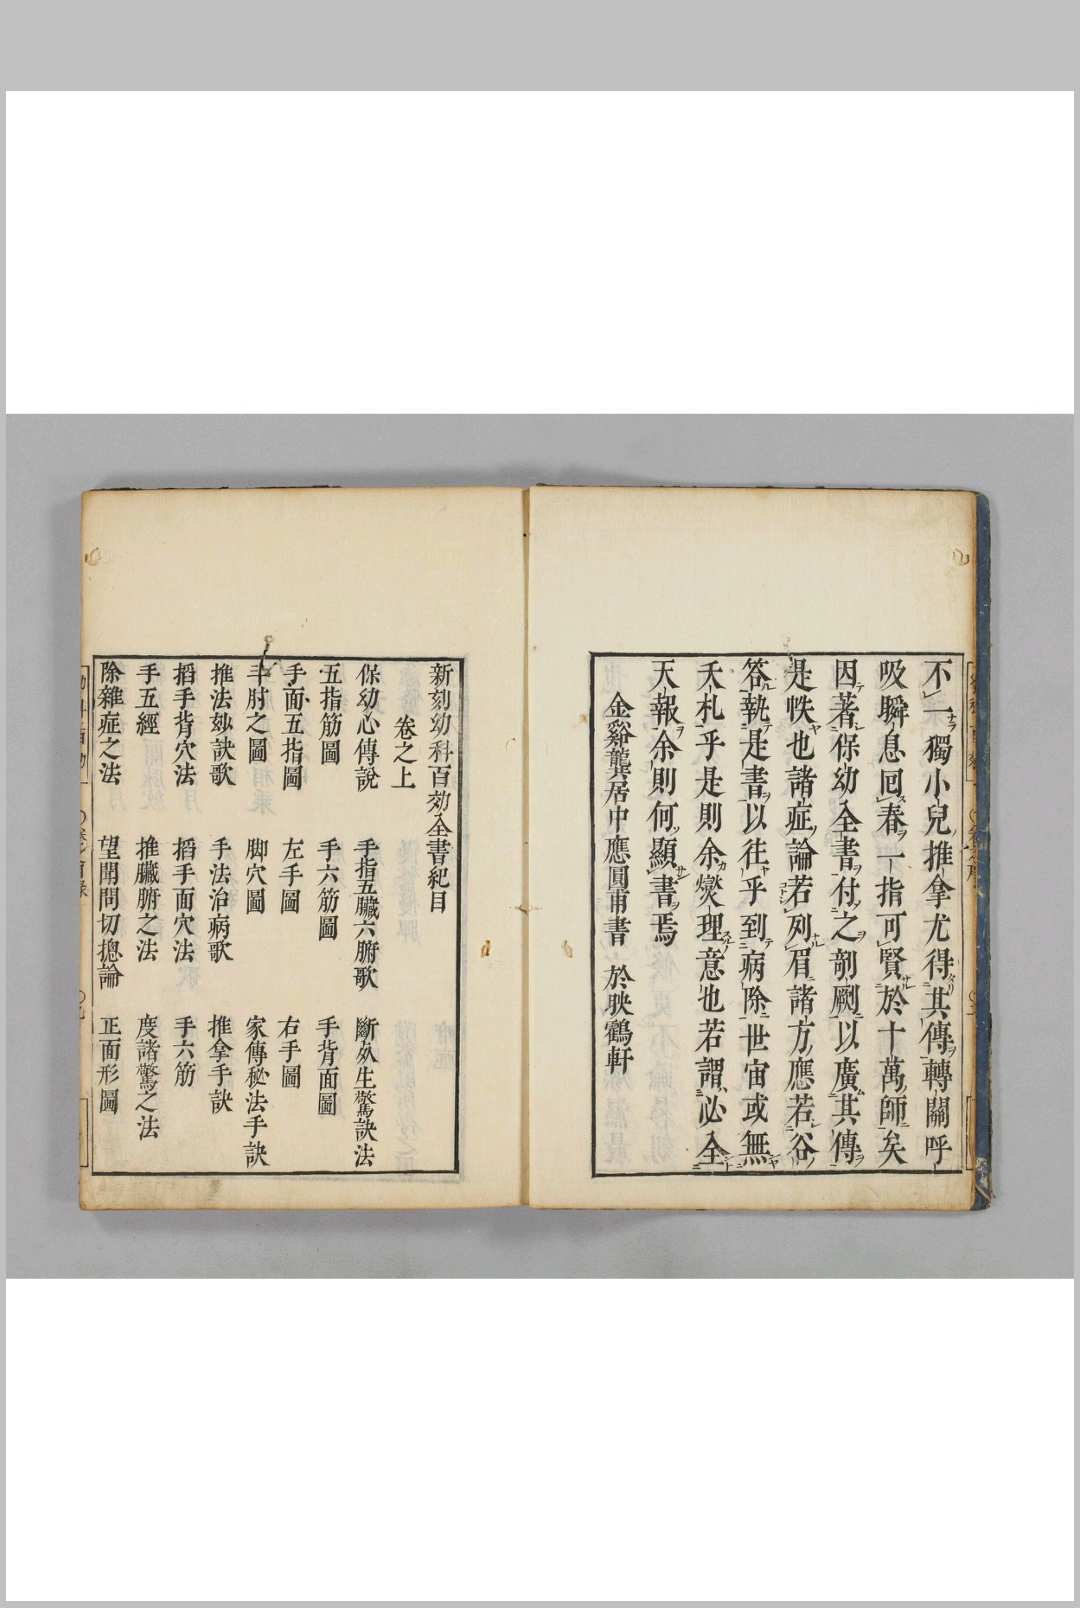 不一獨小兒推拿尤得其傳轉關呼
吸瞬息回春一指可賢於十萬師矣
因著保幼全書付之剞劂以廣其傳
是帙也諸症論若列眉諸方應若谷
答執是書以往乎到病除世宙或無
夭札乎是則余燮理意也若謂必全
天報余則何顯書焉
金谿龔居中應圓甫書 於映鶴軒
新刻幼科百効全書紀目
卷之上
保幼心傳說 手指五臟六腑歌 斷死生驚訣法
五指筋圖 手六筋圖 手背面圖
手面五指圖 左手圖 右手圖
手肘之圖 脚穴圖 家傳秘法手訣
推法妙訣歌 手法治病歌 推拿手訣
搯手背穴法 搯手面穴法 手六筋
手五經 推臟腑之法 度諸驚之法
除雜症之法 望聞問切揔論 正面形圖